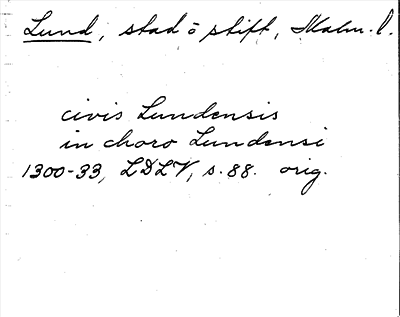 Lund, stad o stift, Malm. l.
civis Lundensis
in choro Lundensi
1300-33, LDLV, s. 88. orig.